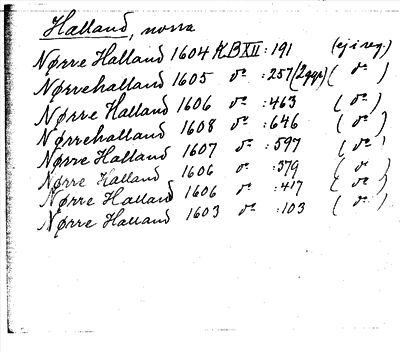 Halland, norra
Nørre Halland 1604 KB XII :191 (ej i reg.)
Nørrehalland 1605 do :257 (2 ggr) ( do )
Nørre Halland 1606 do :463 ( do )
Nørrehalland 1608 do :646 ( do )
Nørre Halland 1607 do :597 ( do )
Nørre Halland 1606 do :379 ( do )
Nørre Halland 1606 do :417 ( do )
Nørre Halland 1603 do :103 ( do )